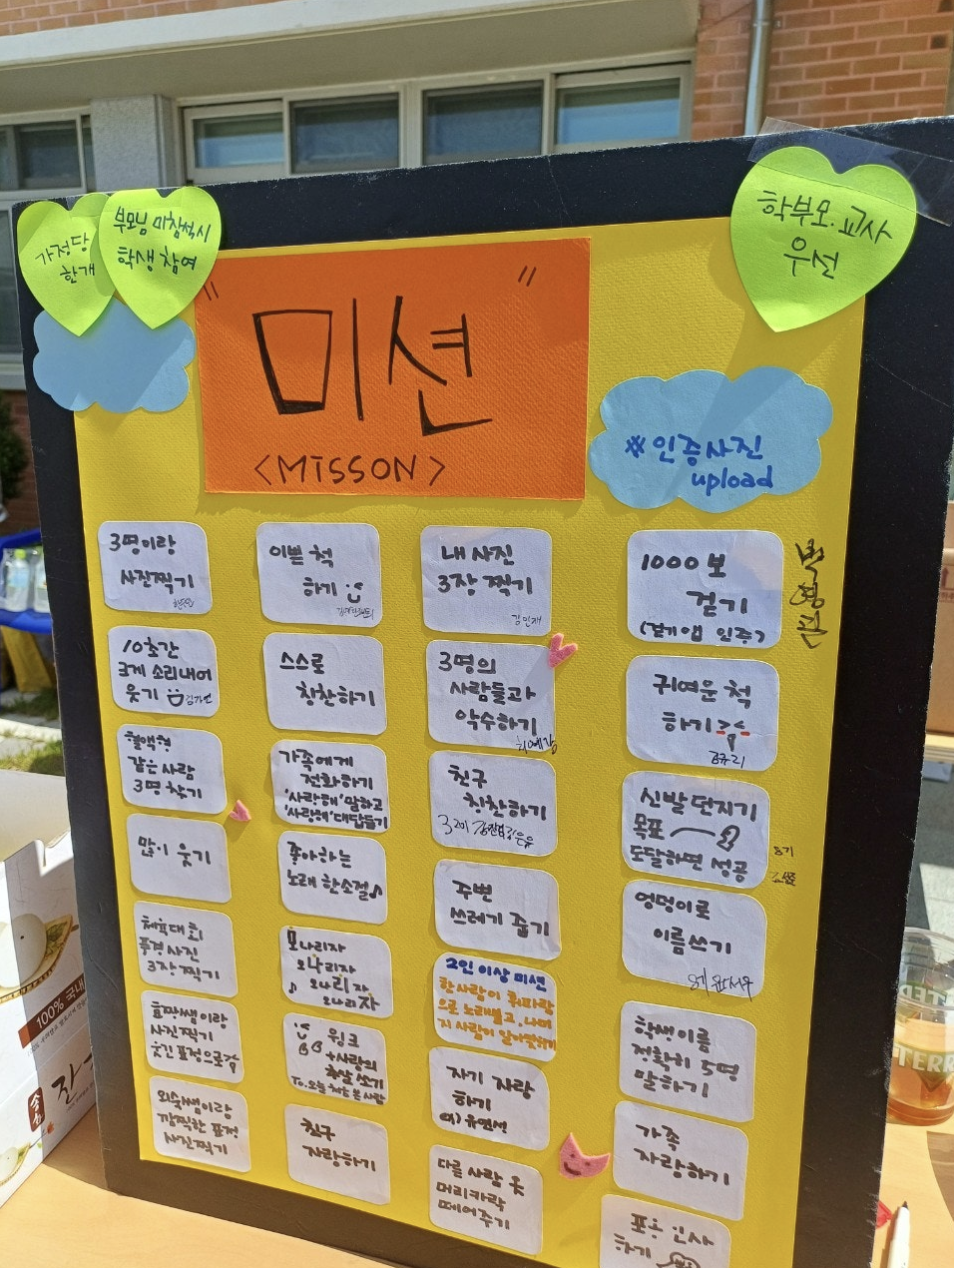 가정당
한개
부모님 미참석시
학생 참여
학부모.교사
우선
"미션"
<MISSON>
#인증사진
upload
3명이랑
사진찍기
10초간
크게 소리내어
웃기
혈액형
같은 사람
3명 찾기
많이 웃기
체육대회
풍경사진
3장 찍기
사진찍기
웃긴 표정으로
깜찍한 표정
사진찍기
이쁜 척
하기
스스로
칭찬하기
가족에게
전화하기
'사랑해' 말하고
'사랑해' 대답듣기
좋아하는
노래 한소절♪
모나리자
모나리자
♪ 모나리자
모나리자
윙크
+사랑의
화살 쏘기
To. 오늘 처음 본 사람
친구
자랑하기
내 사진
3장 찍기
김인재
3명의
사람들과
악수하기
친구
칭찬하기
주변
쓰레기 줍기
2인 이상 미션
한사람이 휘파람
으로 노래부르고, 나머
지 사람이 알아맞히기
자기 자랑
하기
ex) 유연성
다른 사람 옷
머리카락
떼어주기
1000보
걷기
(걷기앱 인증)
귀여운 척
하기
신발던지기
목표
도달하면 성공
엉덩이로
이름쓰기
학생이름
정확히 5명
말하기
가족
자랑하기
포옹 인사
하기
100% 국내